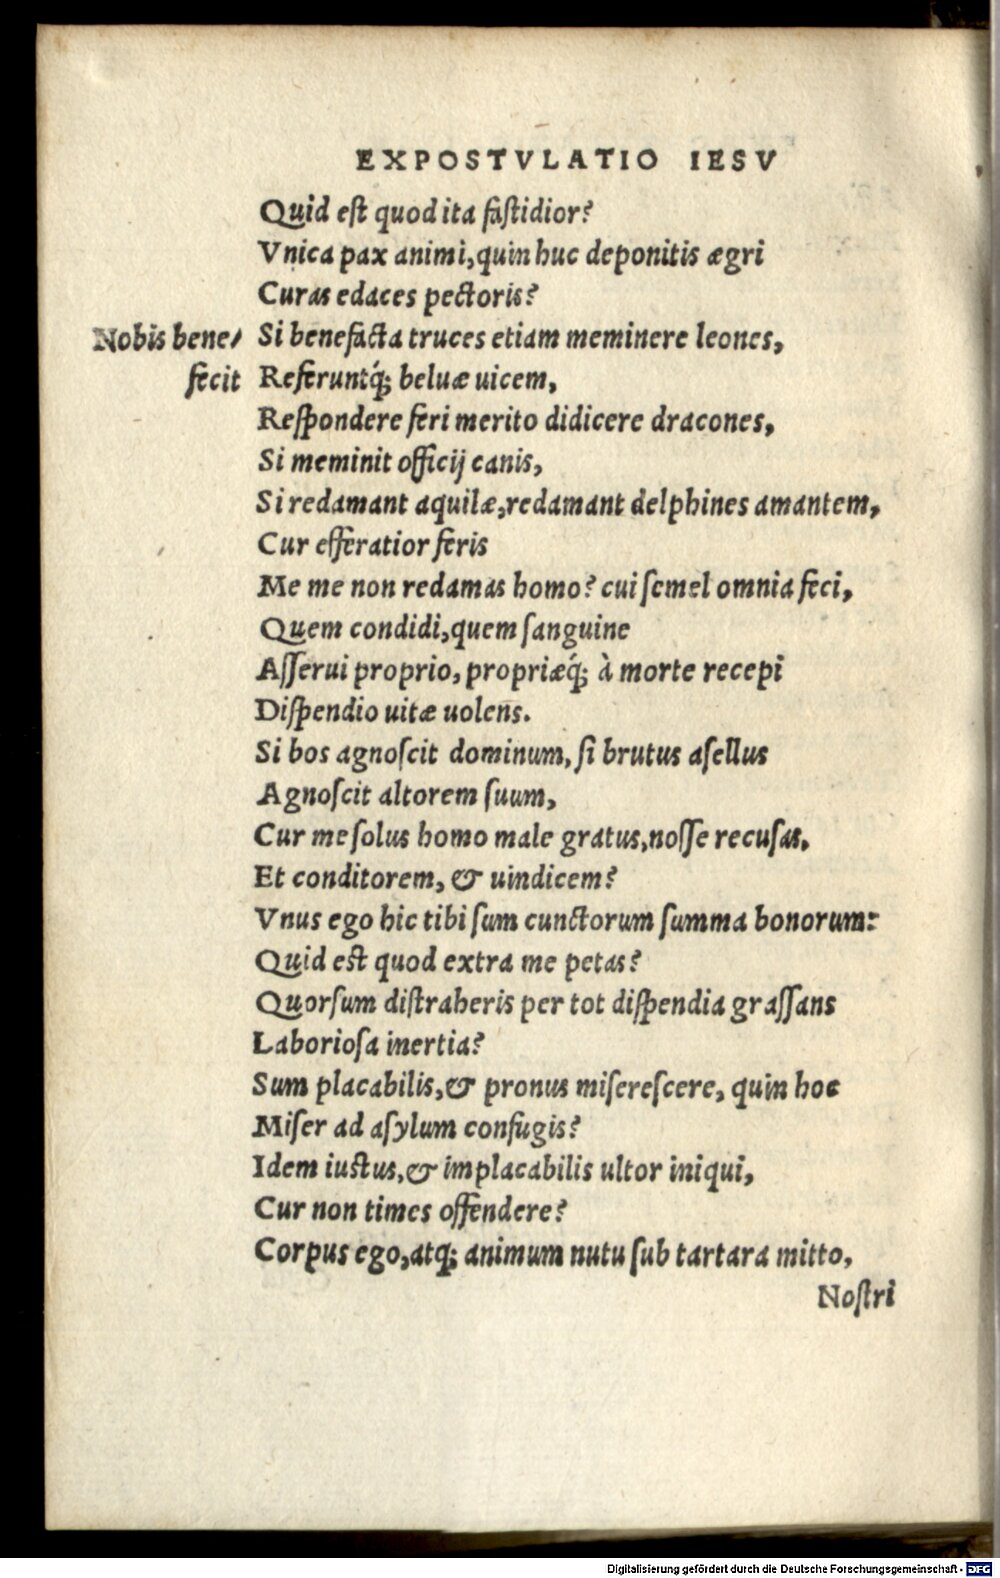 EXPOSTVLATIO IESV
Quid eſt quod ita faſtidior?
Vnica pax animi, quin huc deponitis ægri
Curas edaces pectoris?
Nobis bene/ Si benefacta truces etiam meminere leones,
fecit Referuntq́; beluæ uicem,
Reſpondere feri merito didicere dracones,
Si meminit officij canis,
Si redamant aquilæ, redamant delphines amantem,
Cur efferatior feris
Me me non redamas homo? cui ſemel omnia feci,
Quem condidi, quem ſanguine
Aſſerui proprio, propriæq́; à morte recepi
Diſpendio uitæ uolens.
Si bos agnoſcit dominum, ſi brutus aſellus
Agnoſcit altorem ſuum,
Cur me ſolus homo male gratus, noſſe recuſas,
Et conditorem, & uindicem?
Vnus ego hic tibi ſum cunctorum ſumma bonorum:
Quid est quod extra me petas?
Quorſum diſtraheris per tot diſpendia graſſans
Laborioſa inertia?
Sum placabilis, & pronus miſereſcere, quin hoc
Miſer ad aſylum confugis?
Idem iuſtus, & implacabilis ultor iniqui,
Cur non times offendere?
Corpus ego, atq; animum nutu ſub tartara mitto,
Noſtri
Digitalisierung gefördert durch die Deutsche Forschungsgemeinschaft - DFG